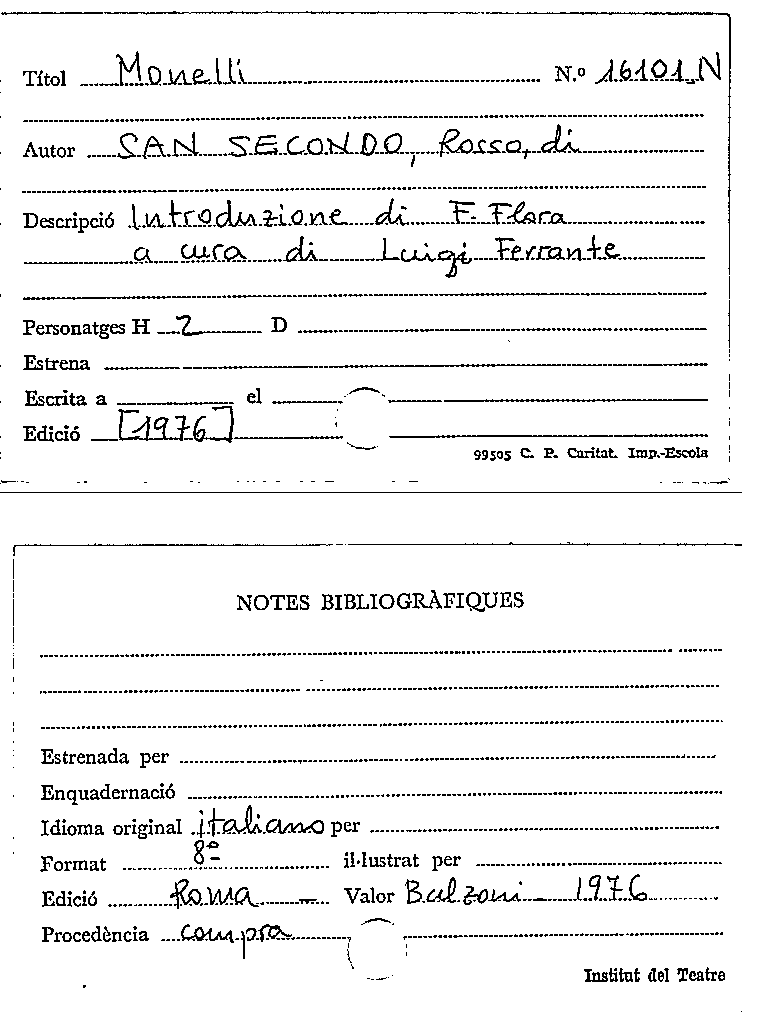 Títol Monelli N.º 16101 N
Autor SAN SECONDO, Rosso, di
Descripció Introduzione di F. Flora
a cura di Luigi Ferrante
Personatges H 2 D
Estrena
Escrita a el
Edició [1976]
99505 C. P. Caritat. Imp.-Escola
NOTES BIBLIOGRÀFIQUES
Estrenada per
Enquadernació
Idioma original italiano per
Format 8º il·lustrat per
Edició Roma - Valor Bulzoni - 1976
Procedència compra
Institut del Teatre